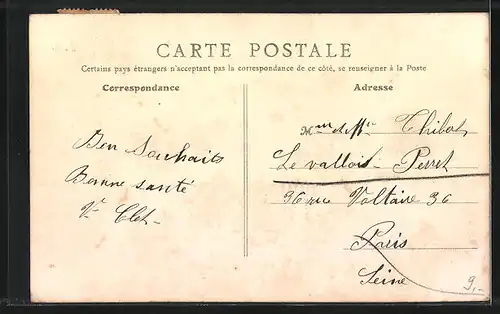 CARTE POSTALE
Certains pays étrangers n'acceptant pas la correspondance de ce côté, se renseigner à la Poste
Correspondance
Adresse
Bon Souhaits
Bonne santé
Vᵉ Clet
Thibot
Levallois Perret
36 rue Voltaire 36
Paris
Seine
9,-